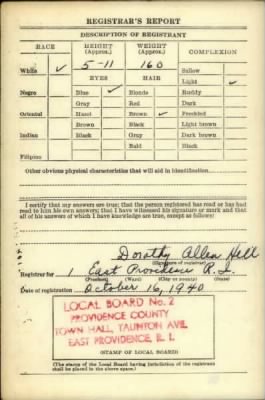 REGISTRAR'S REPORT
DESCRIPTION OF REGISTRANT
RACE HEIGHT (Approx.) WEIGHT (Approx.) COMPLEXION
5-11 160
White ✓ Sallow
EYES HAIR Light ✓
Negro Blue ✓ Blonde Ruddy
Gray Red Dark
Oriental Hazel Brown ✓ Freckled
Brown Black Light brown
Indian Black Gray Dark brown
Bald Black
Filipino
Other obvious physical characteristics that will aid in identification
I certify that my answers are true; that the person registered has read or has had
read to him his own answers; that I have witnessed his signature or mark and that
all of his answers of which I have knowledge are true, except as follows:
Dorothy Allen Hall
(Signature of registrar)
Registrar for 1 East Providence R.I.
(Precinct) (Ward) (City or county) (State)
Date of registration October 16, 1940
LOCAL BOARD No. 2
PROVIDENCE COUNTY
TOWN HALL, TAUNTON AVE.
EAST PROVIDENCE, R. I.
(STAMP OF LOCAL BOARD)
(The stamp of the Local Board having jurisdiction of the registrant
shall be placed in the above space.)